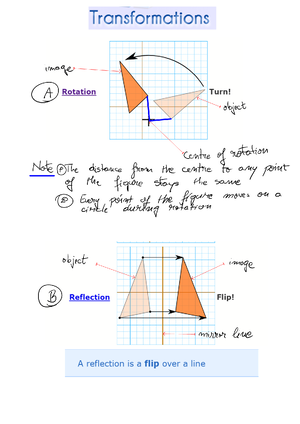 Transformations
image
A Rotation
Turn!
object
Centre of rotation
Note A The distance from the centre to any point
of the figure stays the same
B Every point of the figure moves on a
circle during rotation
object
image
B Reflection
Flip!
mirror line
A reflection is a flip over a line